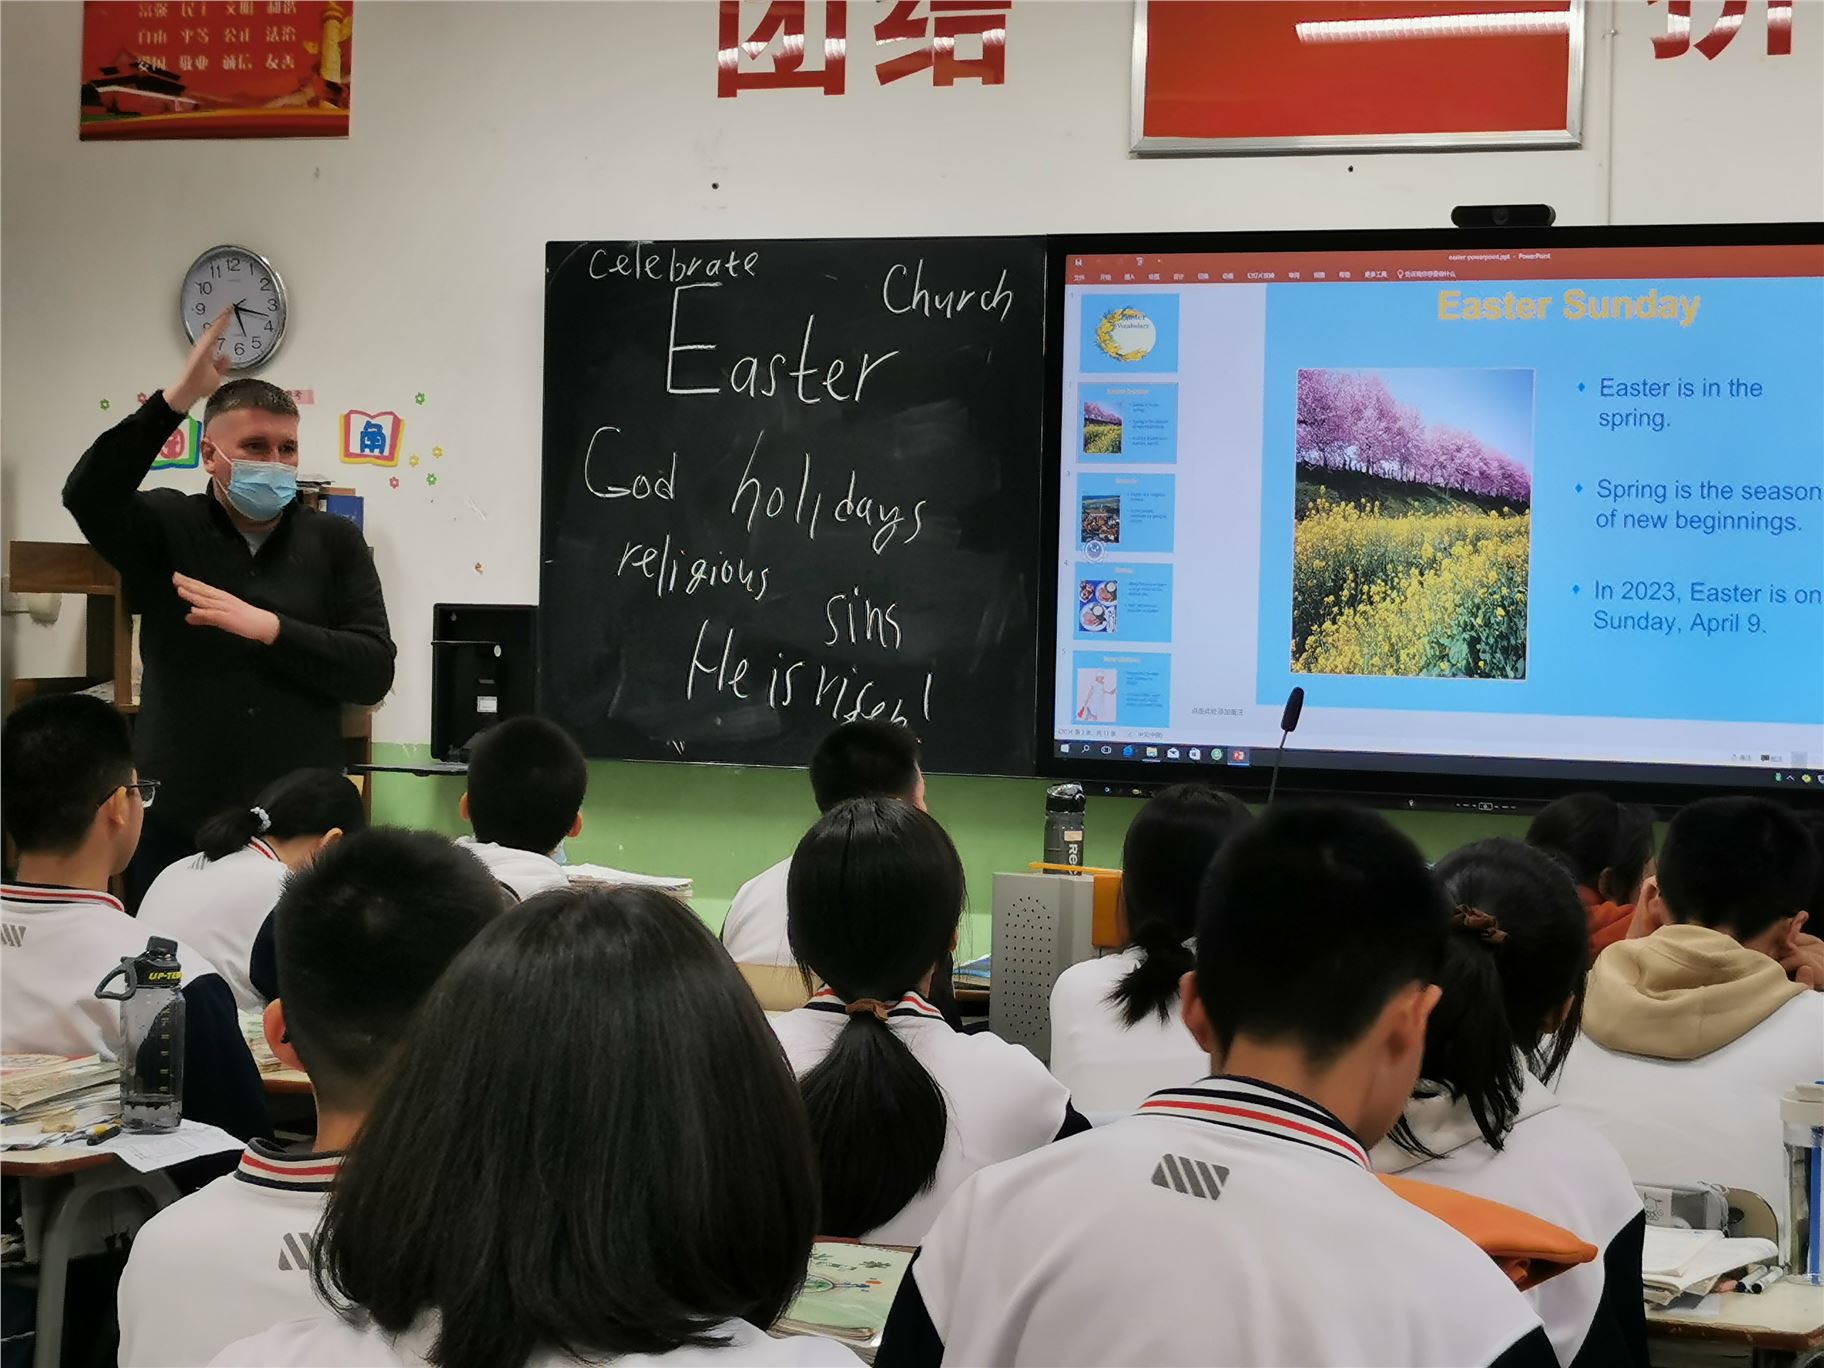 富强 民主 文明 和谐
自由 平等 公正 法治
爱国 敬业 诚信 友善
团结
拼
11 12 1
10 2
9 3
8 4
7 6 5
celebrate
Church
Easter
God holidays
religious
sins
He is risen!
easter-powerpoint.ppt - PowerPoint
Easter Vocabulary
Easter Sunday
Easter is in the
spring.
Spring is the season
of new beginnings.
In 2023, Easter is on
Sunday, April 9.
单击此处添加备注
UP-TE
Re